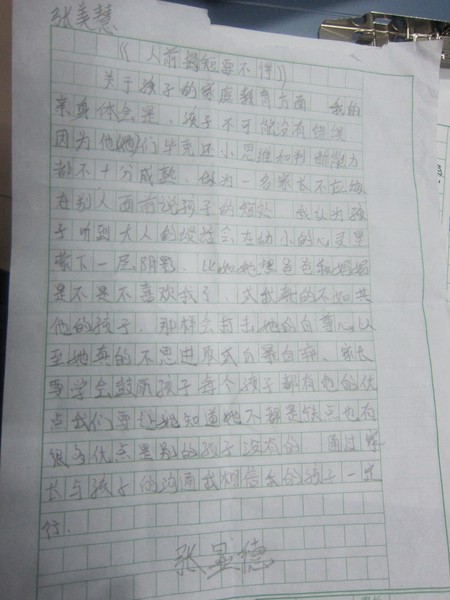 张美慧
《人前揭短要不得》
关于孩子的家庭教育方面 我的
亲身体会是、孩子不可能没有错误
因为他(她)们毕竟还小思维和判断能力
都不十分成熟、做为一名家长不应该
在别人面前说孩子的短处 我认为孩
子听到大人的谈话会在幼小的心灵里
蒙下一层阴影、比如她想爸爸和妈妈
是不是不喜欢我了、或我真的不如其
他的孩子、那样会打击她的自尊心以
至她真的不思进取或自暴自弃、家长
要学会鼓励孩子每个孩子都有他的优
点我们要让她知道她不都是缺点也有
很多优点是别的孩子没有的 通过家
长与孩子的沟通我相信我的孩子一定
行.
张显德